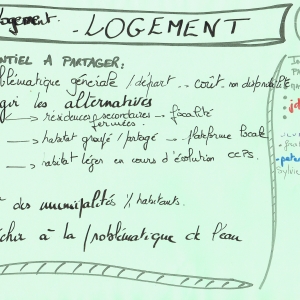 logement.
- LOGEMENT
NTIEL A PARTAGER:
blématique générale / départ .. coût - non disponibilité
les alternatives
→ résidences secondaires → fiscalité
fermées.
→ habitat groupé / partagé → plateforme
→ habitat léger en cours d'évolution CCPS.
des municipalités % habitants.
à la problématique de l'eau